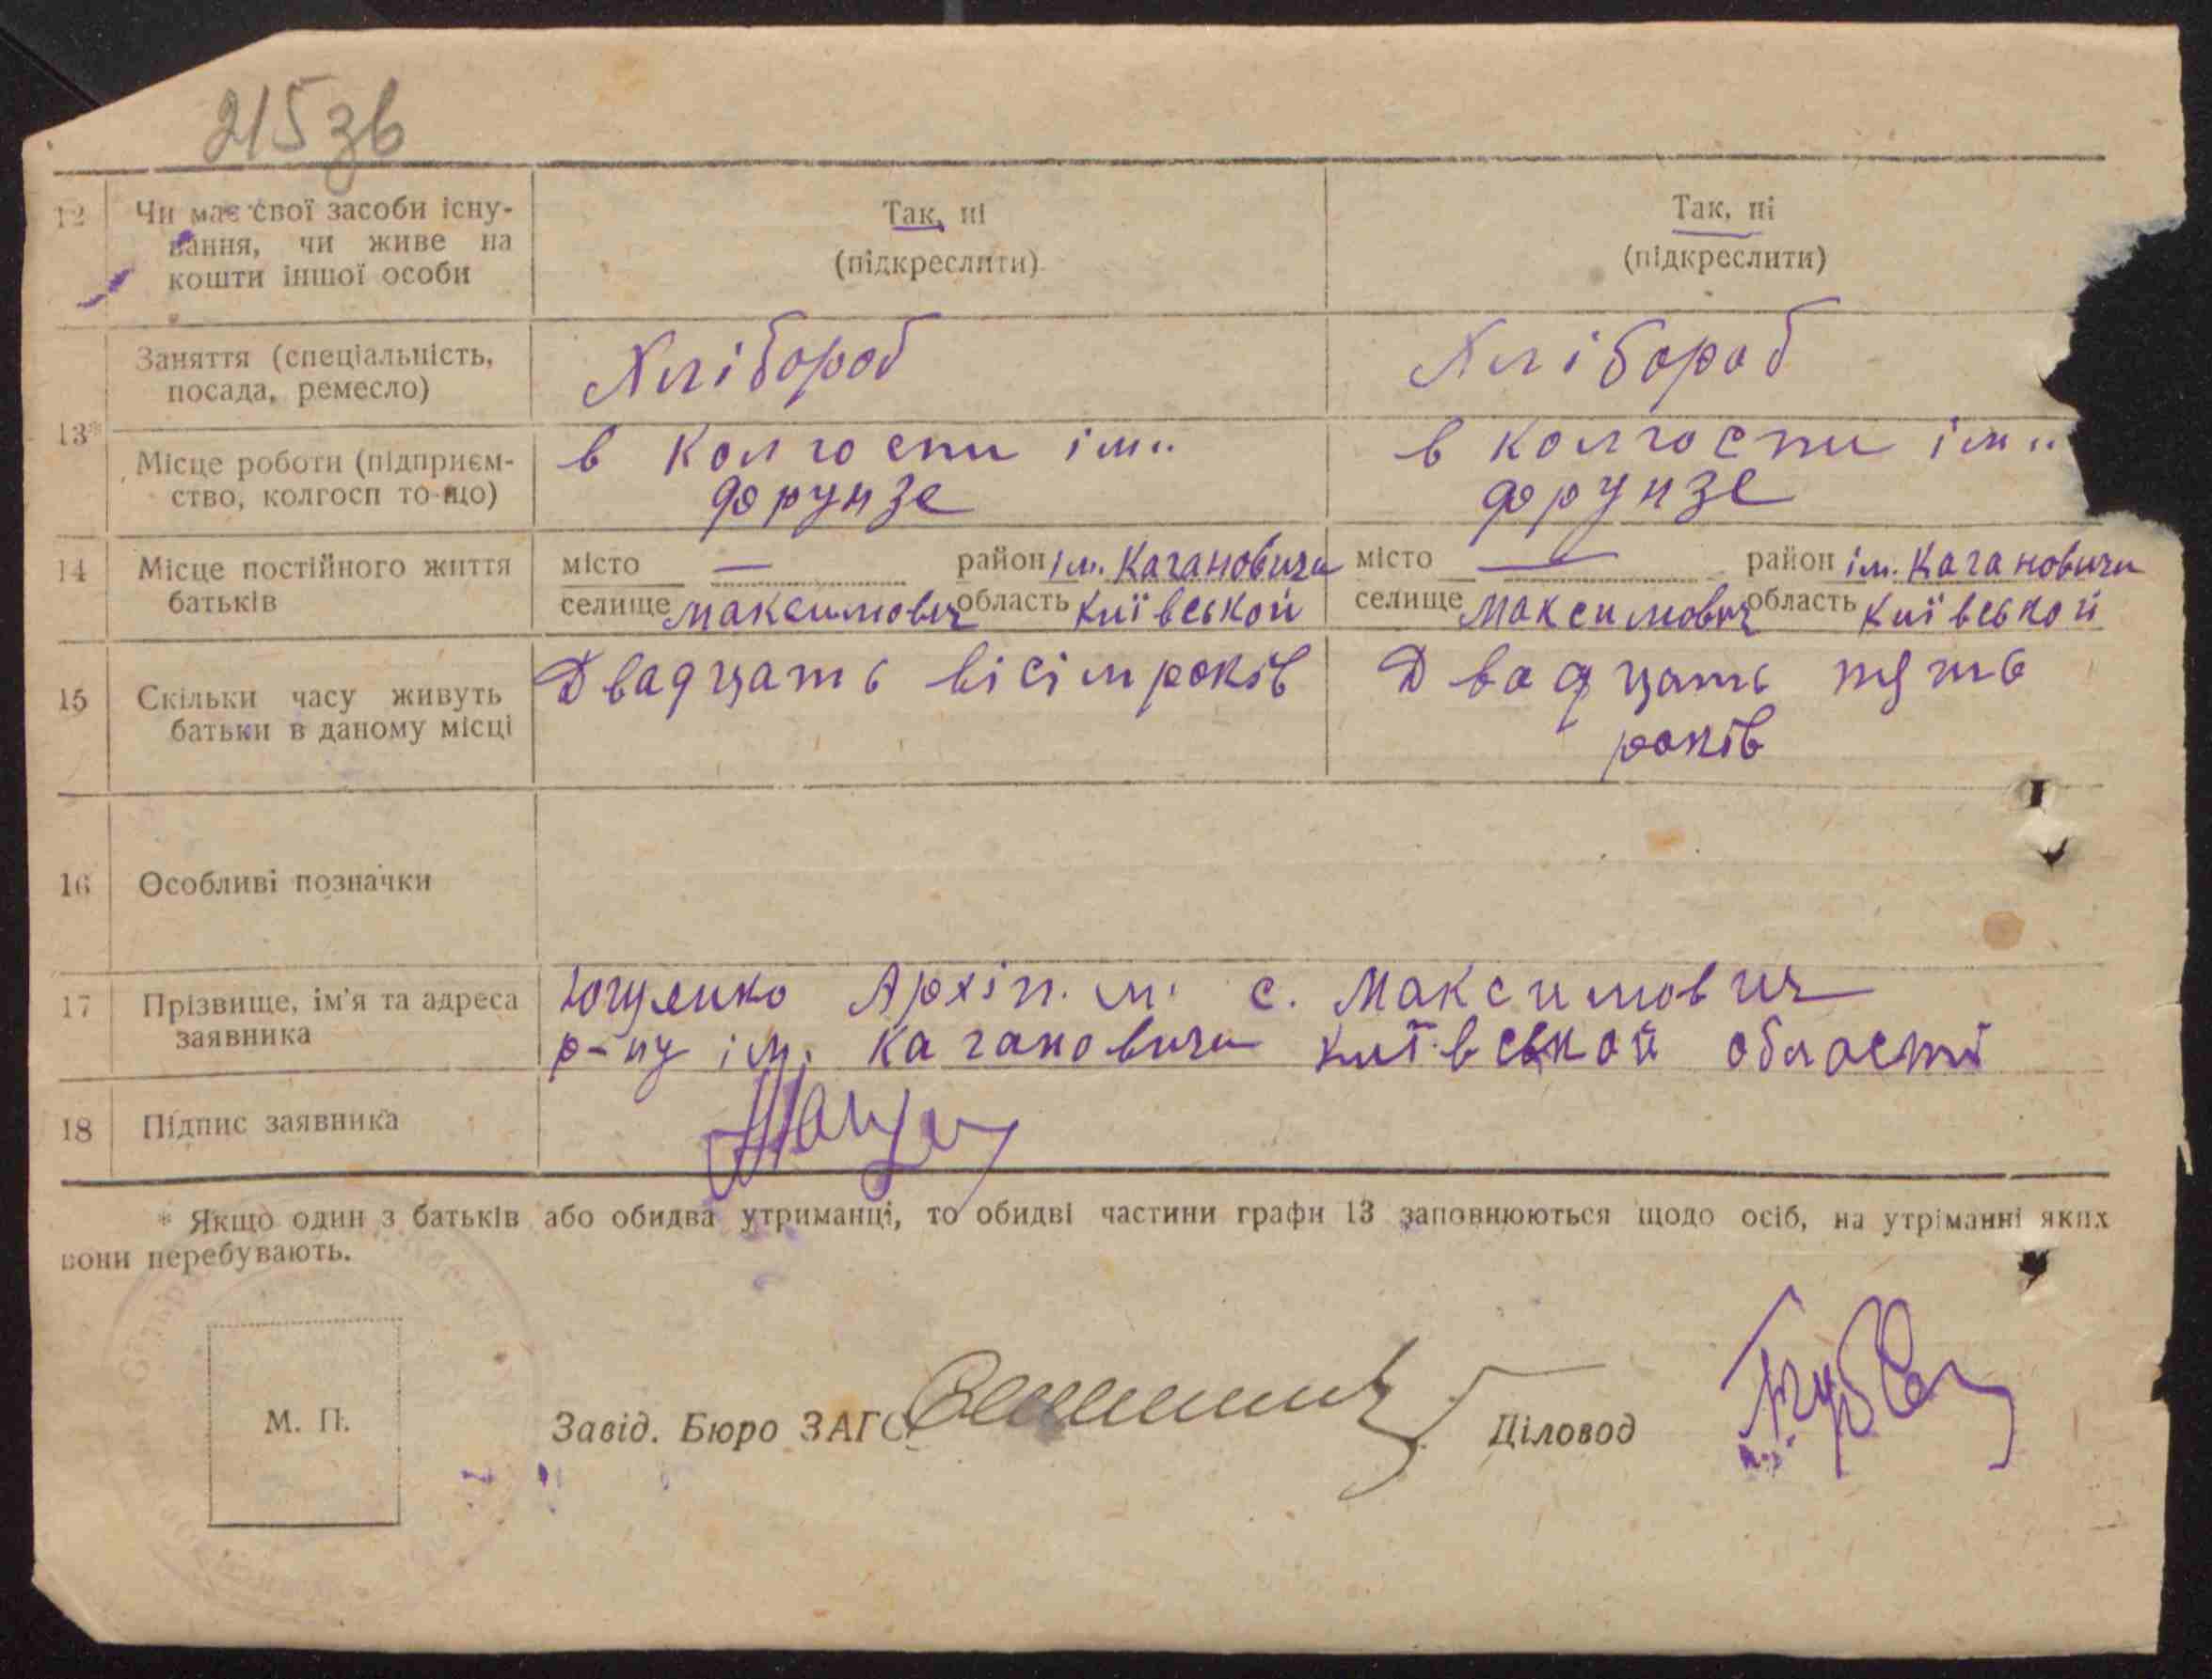 215 зв
12 Чи має свої засоби існу-
вання, чи живе на
кошти іншої особи
Так, ні
(підкреслити)
Так, ні
(підкреслити)
13*
Заняття (спеціальність,
посада, ремесло)
Хлібороб
Хлібороб
Місце роботи (підприєм-
ство, колгосп то-що)
в колгоспи ім..
Фрунзе
в колгоспи ім..
Фрунзе
14 Місце постійного життя
батьків
місто — район ім. Кагановича
селище Максимович область Київськой
місто — район ім. Кагановича
селище Максимович область Київськой
15 Скільки часу живуть
батьки в даному місці
Двадцать вісім років
Двадцать пять
років
16 Особливі позначки
17 Прізвище, ім'я та адреса
заявника
Ющенко Архіп. м. с. Максимович
р-ну ім. Кагановича Київськой області
18 Підпис заявника
* Якщо один з батьків або обидва утриманці, то обидві частини графи 13 заповнюються щодо осіб, на утріманні яких
вони перебувають.
М. П.
Завід. Бюро ЗАГС
Діловод